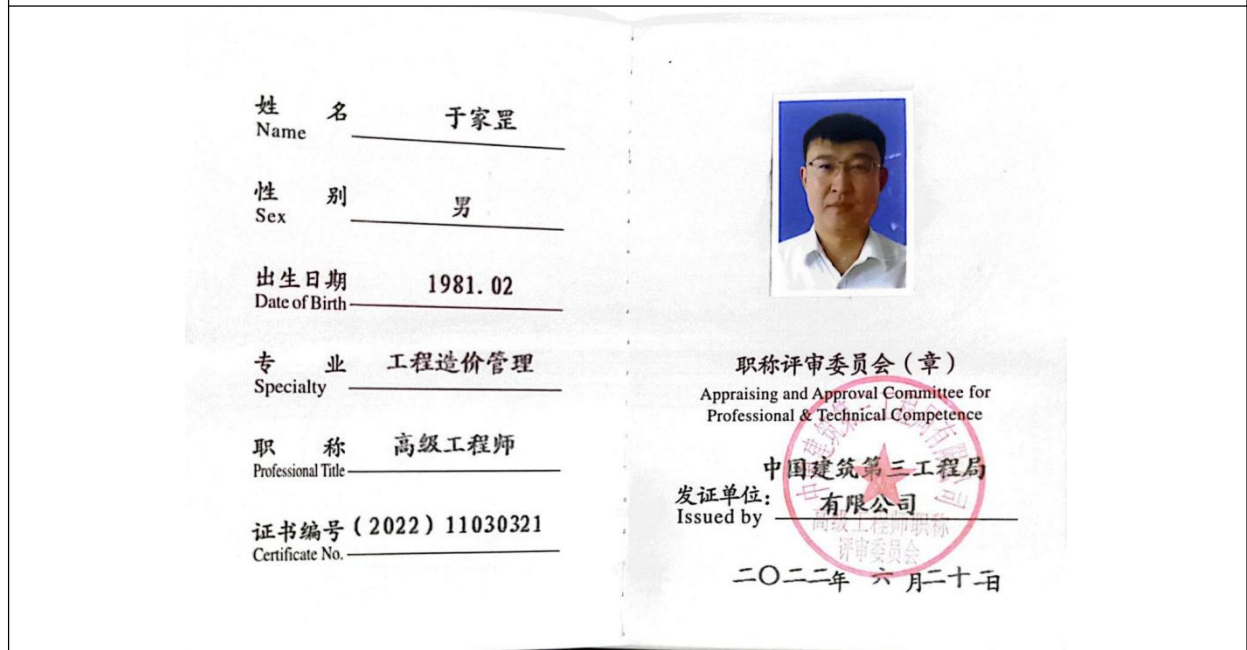 姓 名 于家罡
Name
性 别 男
Sex
出生日期 1981.02
Date of Birth
专 业 工程造价管理
Specialty
职 称 高级工程师
Professional Title
证书编号 (2022) 11030321
Certificate No.
职称评审委员会(章)
Appraising and Approval Committee for
Professional & Technical Competence
中国建筑第三工程局
发证单位: 有限公司
Issued by
二〇二二年 六 月二十二日
中国建筑第三工程局有限公司
高级工程师职称
评审委员会